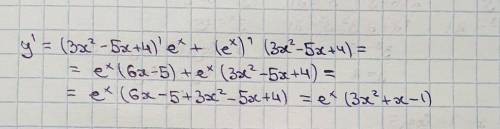 y' = (3x² - 5x + 4)' eˣ + (eˣ)' (3x² - 5x + 4) =
= eˣ (6x - 5) + eˣ (3x² - 5x + 4) =
= eˣ (6x - 5 + 3x² - 5x + 4) = eˣ (3x² + x - 1)